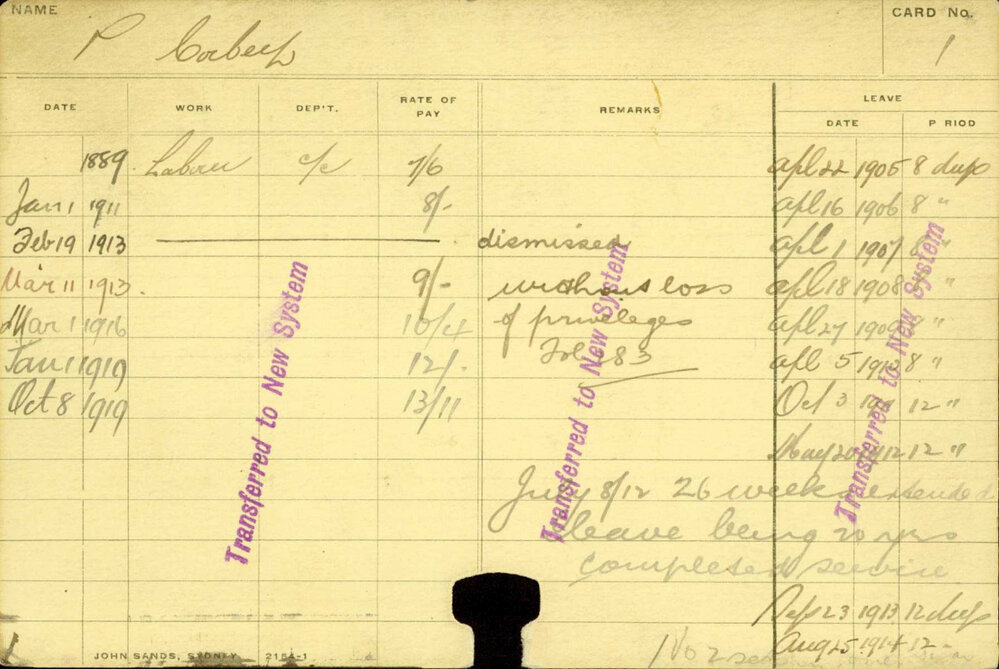 NAME
P Corbett
CARD No.
1
DATE WORK DEP'T. RATE OF PAY REMARKS LEAVE
DATE P RIOD
1889 Labour c/c 7/6 Apl 22 1905 8 days
Jan 1 1911 8/- Apl 16 1906 8 "
Feb 19 1913 dismissed Apl 1 1907 "
Mar 11 1913. 9/- without loss Apl 18 1908 "
Mar 1 1916 10/4 of privileges Apl 27 1909 "
Jan 1 1919 12/- Fol 283 Apl 5 8 "
Oct 8 1919 13/11 Oct 3 12 "
May 20 1912 12 "
July 8/12 26 weeks extended
leave being 20 yrs
completed service
Sep 23 1913 12 days
Aug 25 1914 12 -
No 2
Transferred to New System
Transferred to New System
Transferred to New System
JOHN SANDS, SYDNEY 2184-1